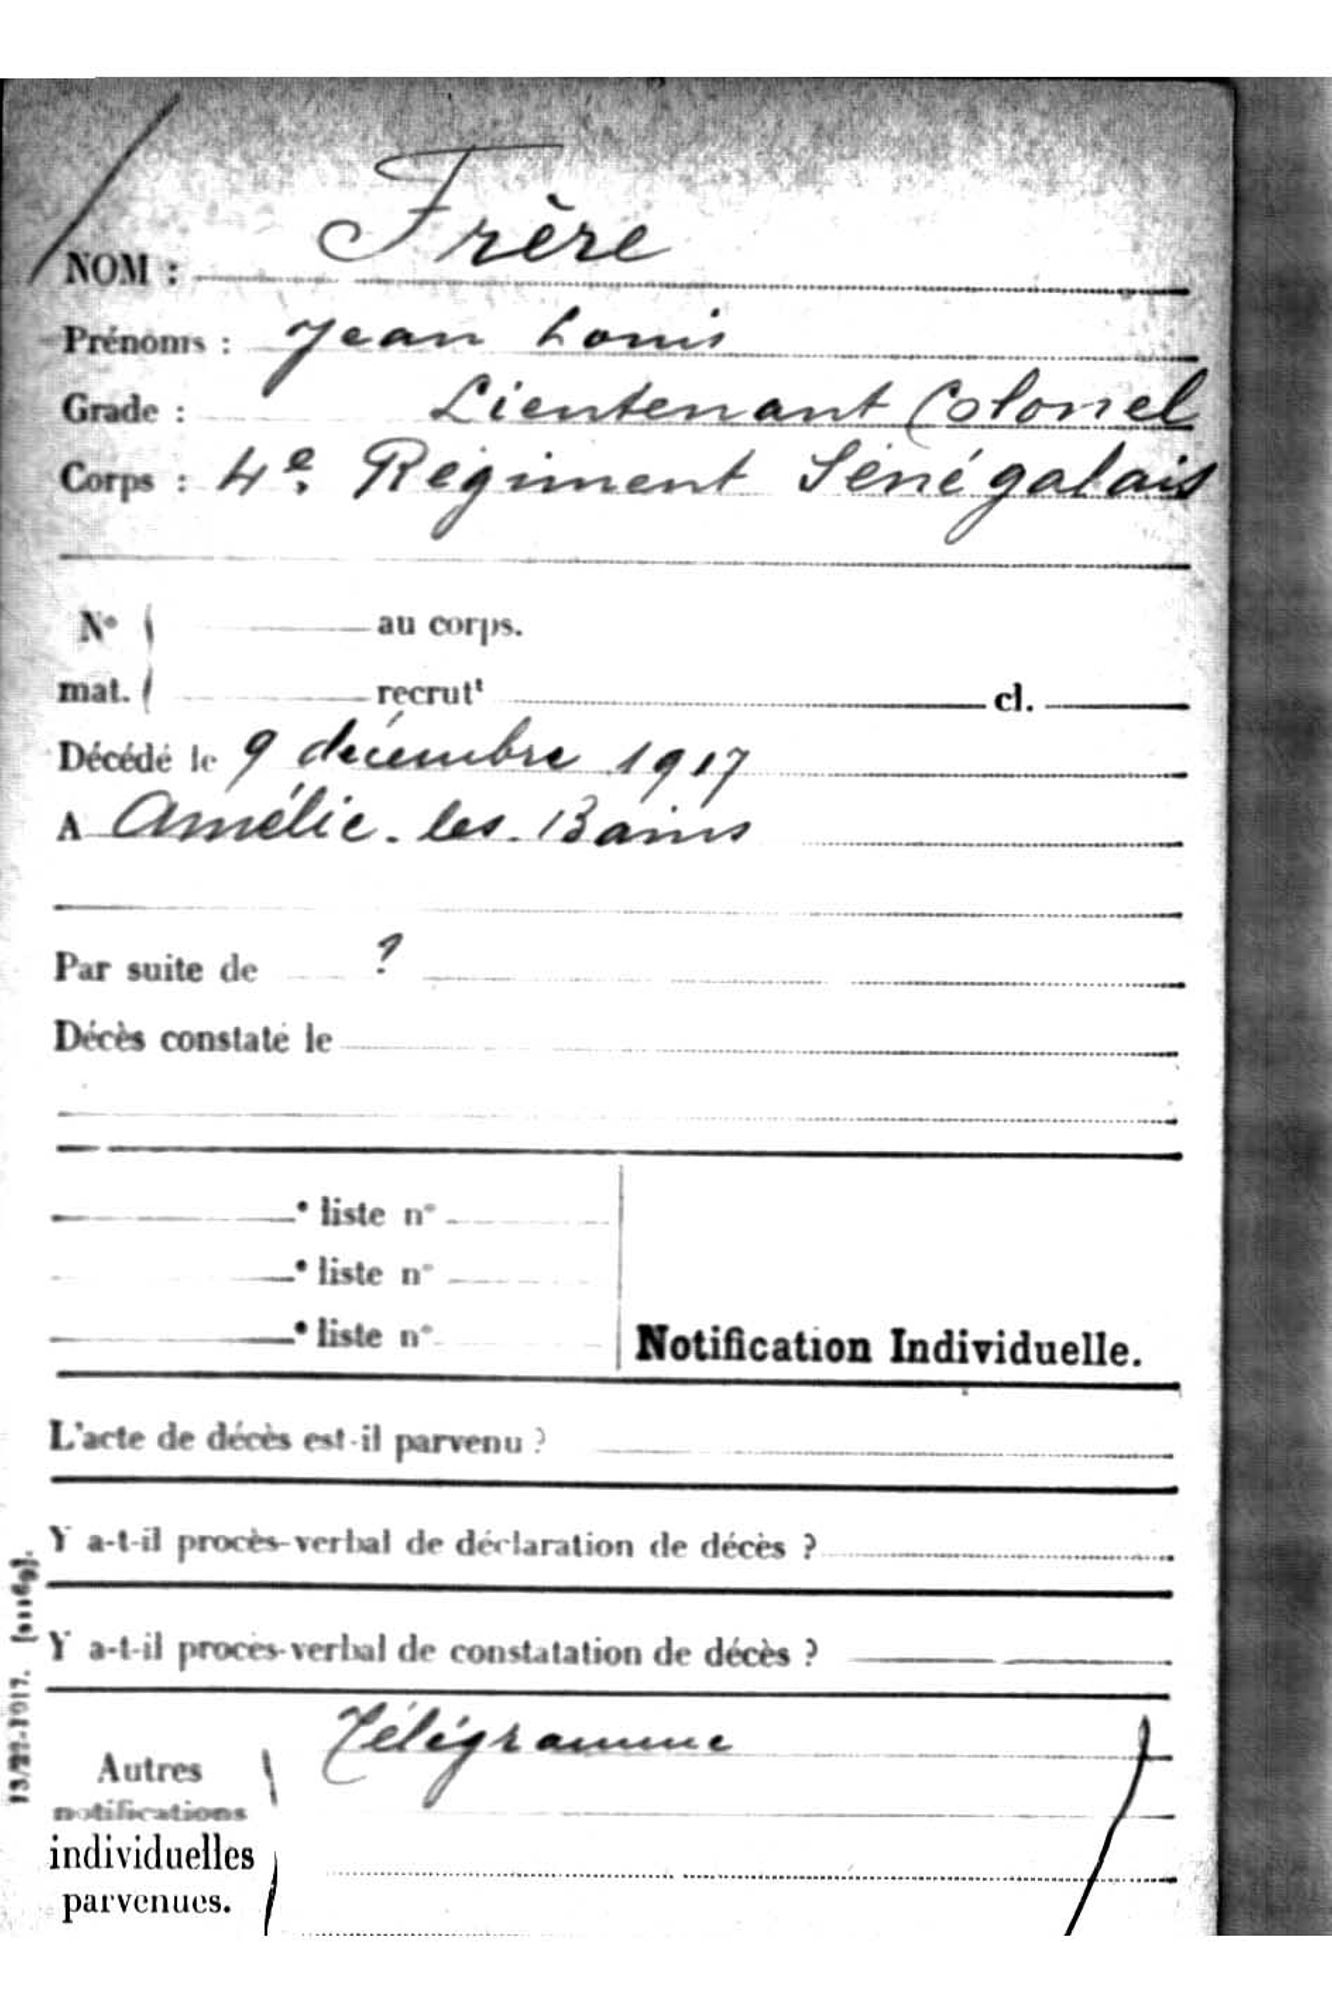 NOM : Frère
Prénoms : Jean Louis
Grade : Lieutenant Colonel
Corps : 4e. Régiment Sénégalais
No au corps.
mat. recrutt cl.
Décédé le 9 décembre 1917
A Amélie-les-Bains
Par suite de ?
Décès constaté le
e liste n°
e liste n°
e liste n°
Notification Individuelle.
L'acte de décès est-il parvenu ?
Y a-t-il procès-verbal de déclaration de décès ?
Y a-t-il procès-verbal de constatation de décès ?
Autres
notifications
individuelles
parvenues.
Télégramme